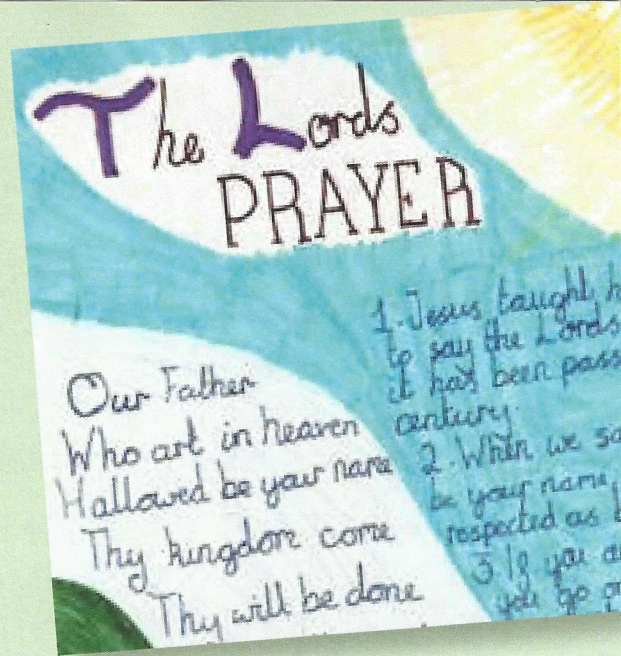 The Lords
PRAYER
Our Father
Who art in heaven
Hallowed be your name
Thy kingdom come
Thy will be done
1. Jesus taught
to say the Lords
it has been
century.
2. When we
be your name,
respected as
3 If you
you go